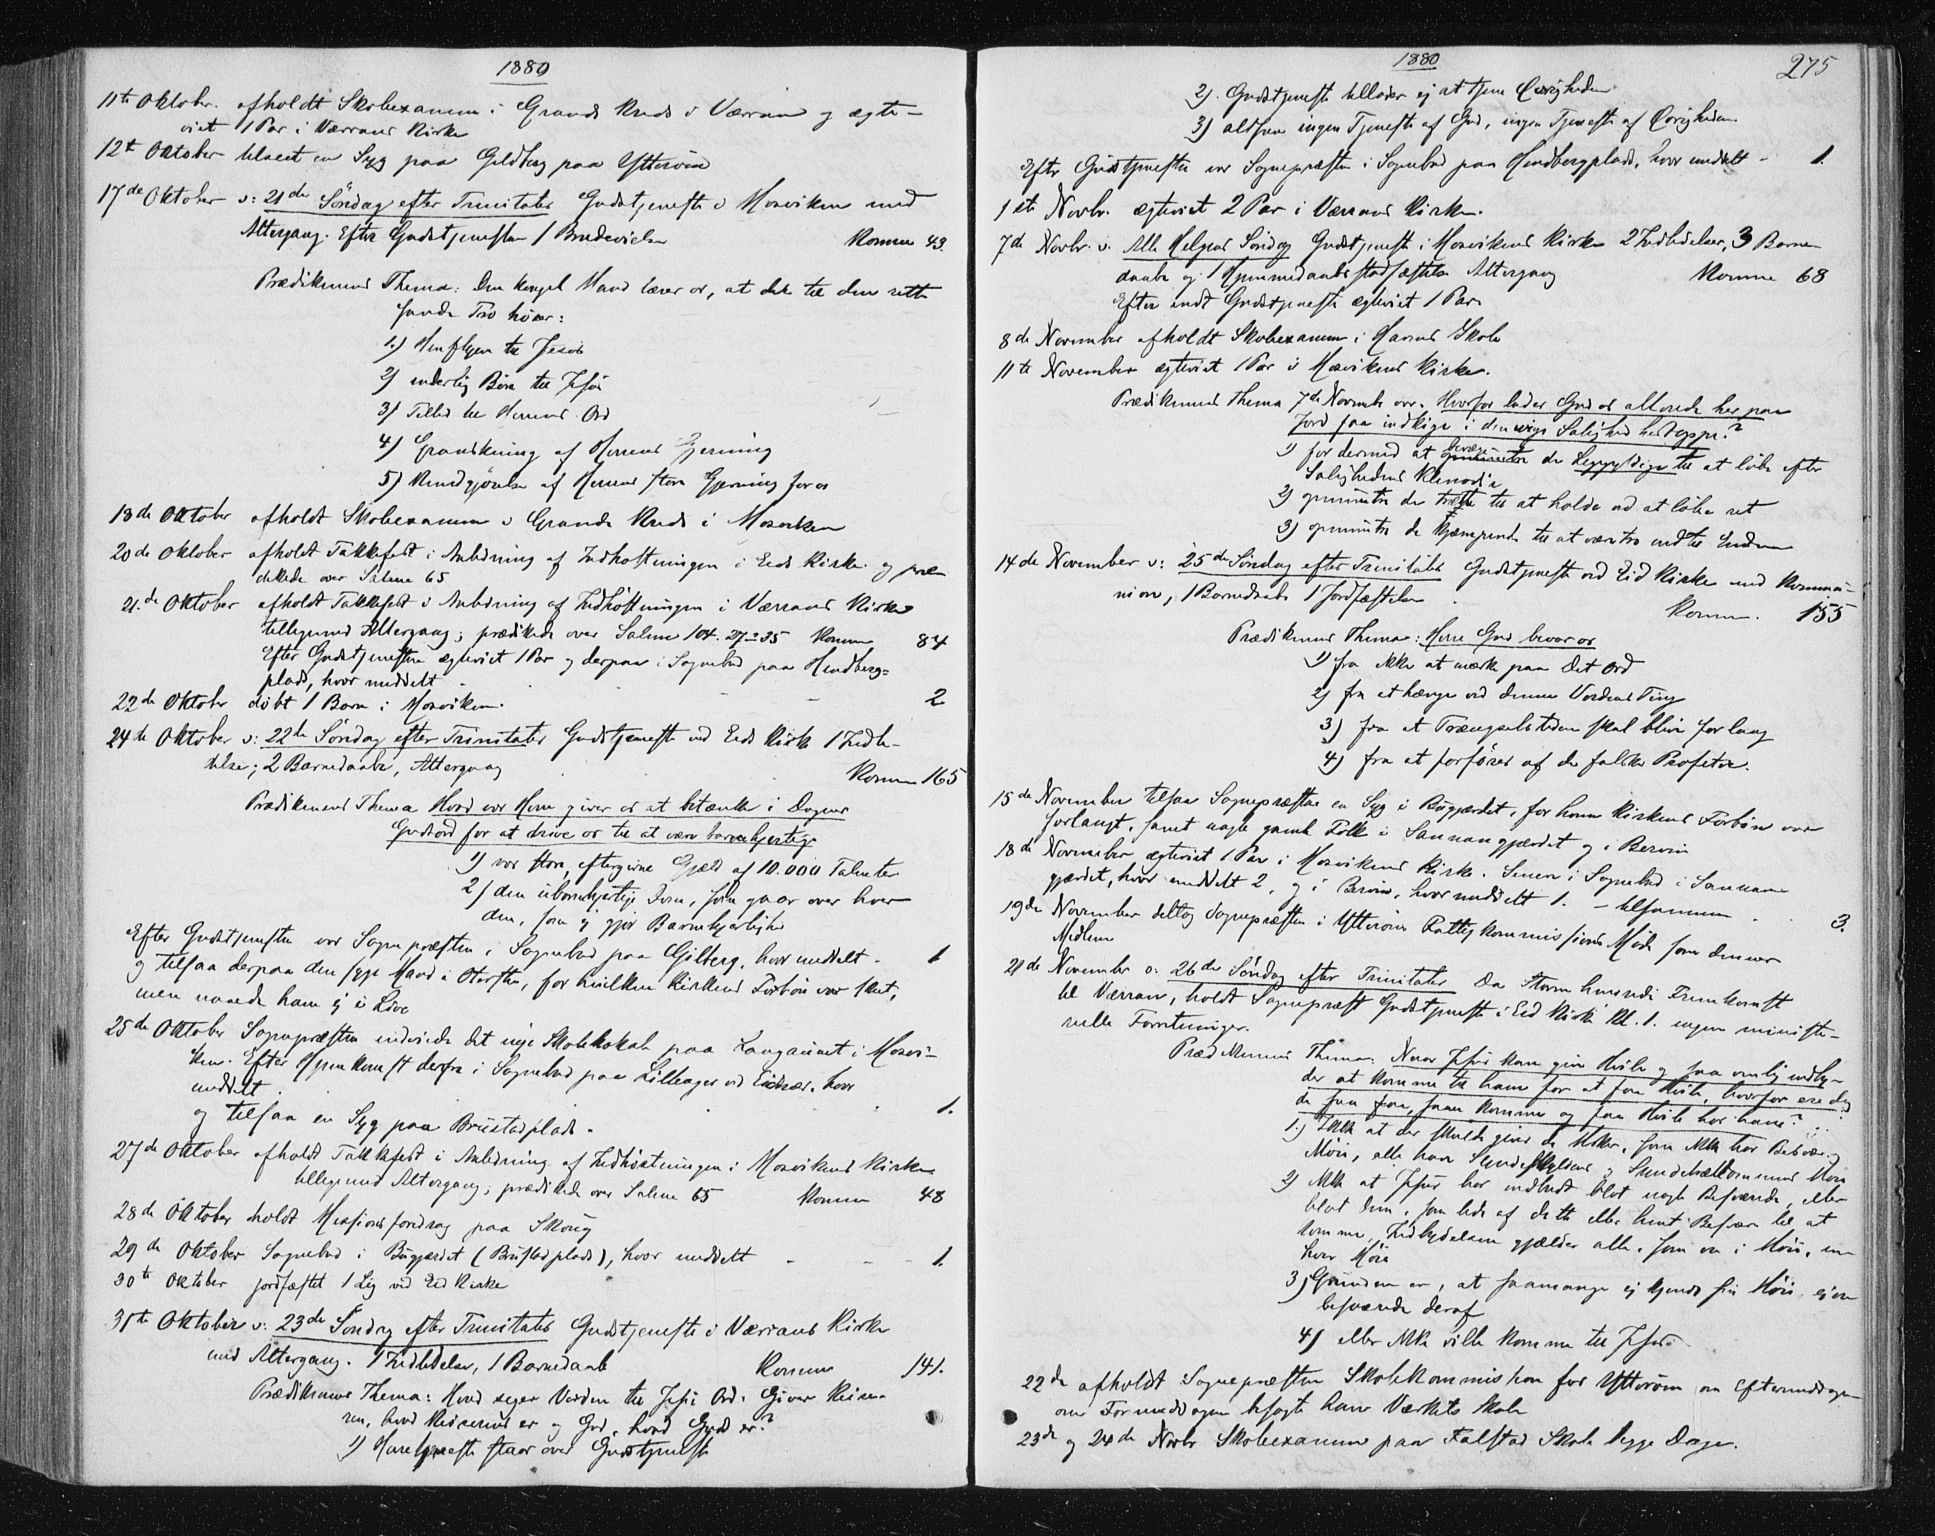 1880
11te Oktober. afholdt Skolexamen i Grands Kreds i Værran og ægte-
viet 1 Par i Værrans Kirke
12te Oktober tilseet en Syg paa Geldberg paa Ytterøen
17de Oktober ɔ: 21de Söndag efter Trinitatis Gudstjeneste i Mosviken med
Altergang. Efter Gudstjenesten 1 Brudevielse Komm 43.
Prædikenens Thema: Den kongel Mand lærer os, at det til den rette
sande Tro hører:
1.) Henflyen til Jesus
2) inderlig Bön til Jesu
3) Tillid til Herrens Ord
4) Granskning af Herrens Gjerning
5) Kundgjörelse af Herrens store Gjerning for os
18de Oktober afholdt Skolexamen i Grande Kreds i Mosviken
20de Oktober afholdt Takkefest i Anledning af Indhøstningen i Eids Kirke og præ
dikede over Salme 65
21.de Oktober afholdt Takkefest i Anledning af Indhöstningen i Værrans Kirke
tilligemed Altergang; prædikede over Salme 104. 27-35 Komm 84
Efter Gudstjenesten ægteviet 1 Par og derpaa i Sognebud paa Hindberg=
plads, hvor meddelt 2
22de Oktober döbt 1 Barn i Mosviken.
24de Oktober ɔ: 22de Söndag efter Trinitatis Gudstjeneste ved Eids Kirke 1 Indle-
delse; 2 Barnedaabe, Altergang Komm 165
Prædikenens Thema Hvad vor Herre giver os at betænke i Dagens
Gudsord for at drive os til at være barmhjertige
1) vor store, eftergivne Gjæld af 10.000 Talenter
2) den ubarmhjertige Dom, som gaar over hver
den, som ej gjør Barmhjertighed
Efter Gudstjenesten var Sognepræsten i Sognebud paa Gilberg, hvor meddelt - 1
og tilsaa derpaa den syge Mand i, for hvilken Kirkens Forbön var skeet,
men naaede ham ej i Live
25de Oktober Sognepræsten indviede det nye Skolelokale paa Langaunet i Mosvi-
ken. Efter Hjemkomst derfra i Sognebud paa Lilleager ved Eidsør, hvor
meddelt 1.
og tilsaa en Syg paa Brustadplads.
27de Oktober afholdt Takkefest i Anledning af Indhöstningen i Mosvikens Kirke
tilligemed Altergang; prædikede over Salme 65 Komm 48
28de Oktober holdt Missionsforedrag paa Skoug
29de Oktober Sognebud i Bugjærdet (Brustadplads), hvor meddelt - - 1.
30te Oktober jordfæstet 1 Lig ved Eid Kirke
31te Oktober ɔ: 23de Söndag efter Trinitatis Gudstjeneste i Værrans Kirke
med Altergang. 1 Indledelse, 1 Barnedaab Komm 141.
Prædikenens Thema: Hvad siger Verden til Jesu Ord: Giver Keise-
ren, hvad Keiserens er og Gud, hvad Guds er?
1) Herretjeneste staar over Gudstjeneste
1880 275
2). Gudstjeneste tillader ej at tjene Övrigheden
3) altsaa ingen Tjeneste af Gud, ingen Tjeneste af Övrigheden.
Efter Gudstjenesten var Sognepræsten i Sognebud paa Hindbergplads, hvor meddelt - 1.
1ste Novbr. ægteviet 2 Par i Værrans Kirke.
7de Novbr. ɔ. Alle Helgens Söndag Gudstjeneste i Mosvikens Kirke 2 Indledelser, 3 Barne-
daabe og 1 Hjemmedaabs stadfæstelse Altergang Komm 68
Efter endt Gudstjeneste ægteviet 1 Par
8de November afholdt Skolexamen i Havnes Skole
11te November ægteviet 1 Par i Mosvikens Kirke.
Prædikenens Thema 7de Novembr var. Hvorfor lader Gud os allerede her paa
Jord faa indkige i den evige Salighed histoppe?
1) for dermed at bevæge de ligegyldige til at löbe efter
Salighedens Klenodie
2) opmuntre de trætte til at holde ved at löbe ret
3) opmuntre de kjæmpende til at være tro indtil Enden
14de November ɔ: 25de Söndag efter Trinitatis Gudstjeneste ved Eid Kirke med Kommu-
nion, 1 Barnedaab 1 Jordfæstelse Komm. 155
Prædikenens Thema: Herre Gud bevar os
1) fra ikke at mærke paa Det Ord
2) fra at hænge ved denne Verdens Ting
3) fra at Trængselstiden skal blive for lang
4) fra at forföres af de falske Profeter.
15de November tilsaa Sognepræsten en Syg i Bugjærdet, for hvem Kirkens Forbön var
forlangt, samt nogle gamle Folk i Sannangjærdet og i Berein
18de November ægteviet 1 Par i Mosvikens Kirke. Senere i Sognebud i Sannan-
gjærdet, hvor meddelt 2, og i Berein, hvor meddelt 1. - tilsammen 3.
19de November deltog Sognepræsten i Ytteröens Fattigkommissions Möde som dennes
Medlem
21de November ɔ: 26de Söndag efter Trinitatis Da Storm hindrede Fremkomst
til Værran, holdt Sognepræst Gudstjeneste i Eid Kirke Kl. 1. ingen ministe-
rielle Forretninger.
Prædikenens Thema: Naar Jesus kan give Hvile og saa venlig indby-
der at komme til ham for at faa Hvile, hvorfor ere det
da saa faa, som komme og faa Hvile hos ham?
1.) Ikke at der skulde gives de Mker, som ikke har Besvær og
Möie, alle have Syndeskyldens og Syndetrældommens Möie
2) Ikke at Jesus har indbudt blot nogle Besværede, eller
blot dem, som lide af dette eller hint Besvær til at
komme, Indbydelsen gjælder alle, som er i Möie, en-
hver Möie
3) Grunden er, at saamange ej kjende sin Möie, ej er
besværede deraf
4) eller ikke ville komme til Jesus.
22de afholdt Sognepræsten Skolekommission for Ytteröen om Eftermiddagen
om Formiddagen besøgte han Værkets Skole
23de og 24de Novbr Skolexamen paa Falstad Skole begge Dage.